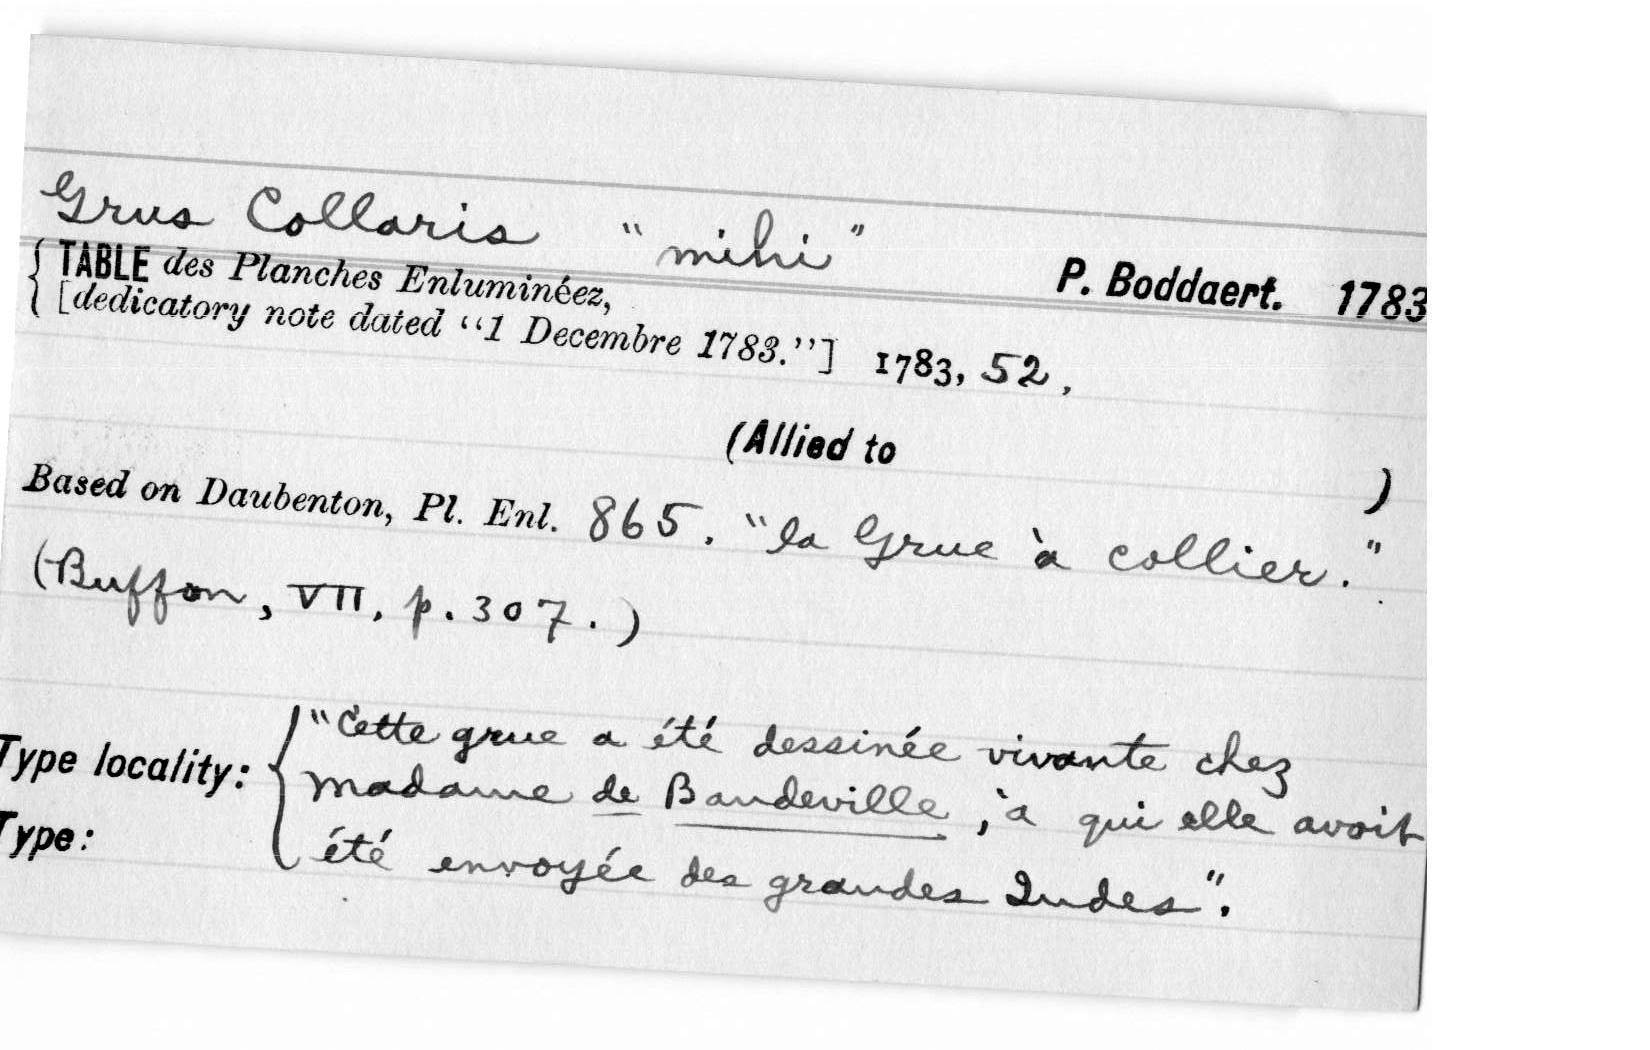 Grus Collaris "mihi"
P. Boddaert. 1783
TABLE des Planches Enluminéez,
[dedicatory note dated "1 Decembre 1783."] 1783, 52,
(Allied to )
Based on Daubenton, Pl. Enl. 865. "la Grue à collier."
(Buffon, VII, p. 307.)
Type locality: "Cette grue a été dessinée vivante chez
madame de Bandeville, à qui elle avoit
Type: été envoyée des grandes Indes".